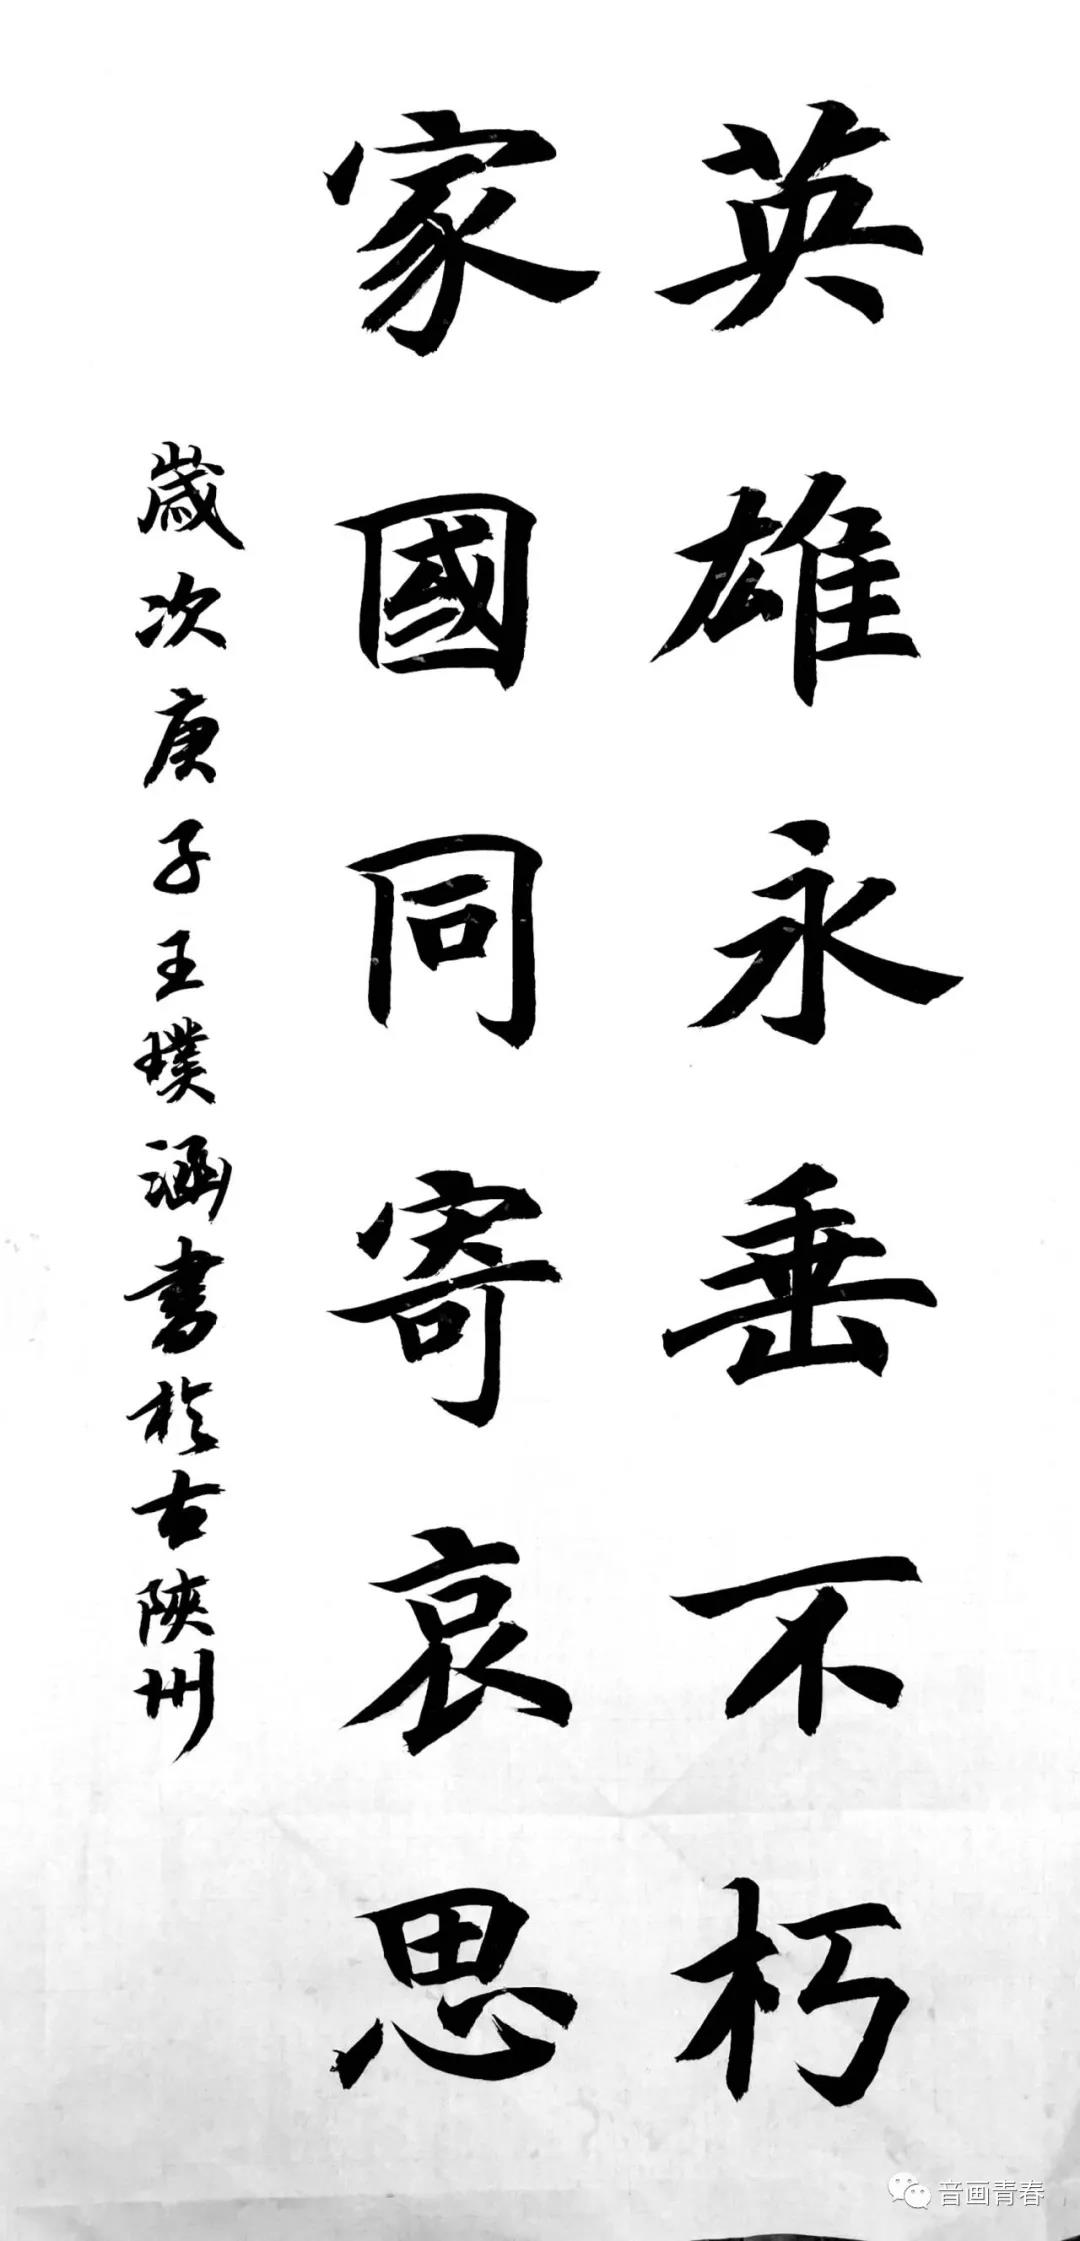 英雄永垂不朽
家國同寄哀思
歲次庚子王璞涵書於古陝州
音画青春